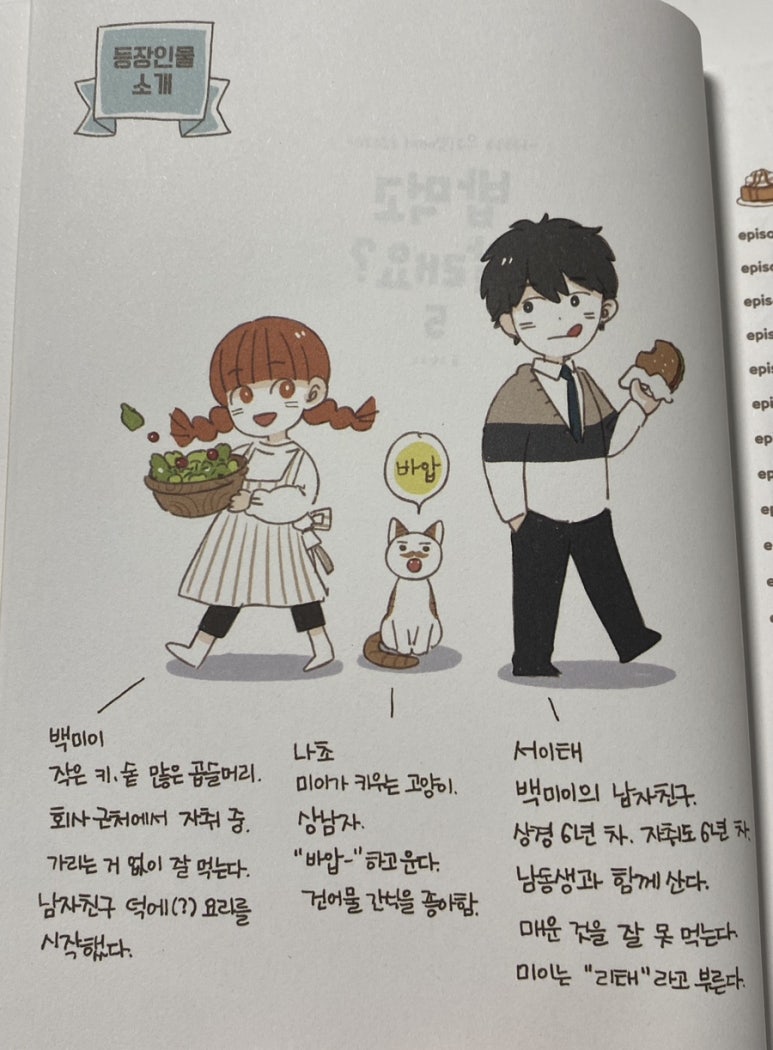 등장인물
소개
밥먹고
5
바압
백미이
작은 키, 숱 많은 곱슬머리.
회사 근처에서 자취 중.
가리는 거 없이 잘 먹는다.
남자친구 덕에(?) 요리를
시작했다.
나쵸
미이가 키우는 고양이.
상남자.
"바압-"하고 운다.
건어물 간식을 좋아함.
서이태
백미이의 남자친구.
상경 6년 차. 자취도 6년 차.
남동생과 함께 산다.
매운 것을 잘 못 먹는다.
미이는 "리태"라고 부른다.
episo
episo
episo
epis
epis
epi
ep
ep
ep
e
e